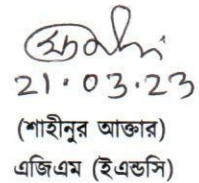 21.03.23
(শাহীনুর আক্তার)
এজিএম (ইএন্ডসি)